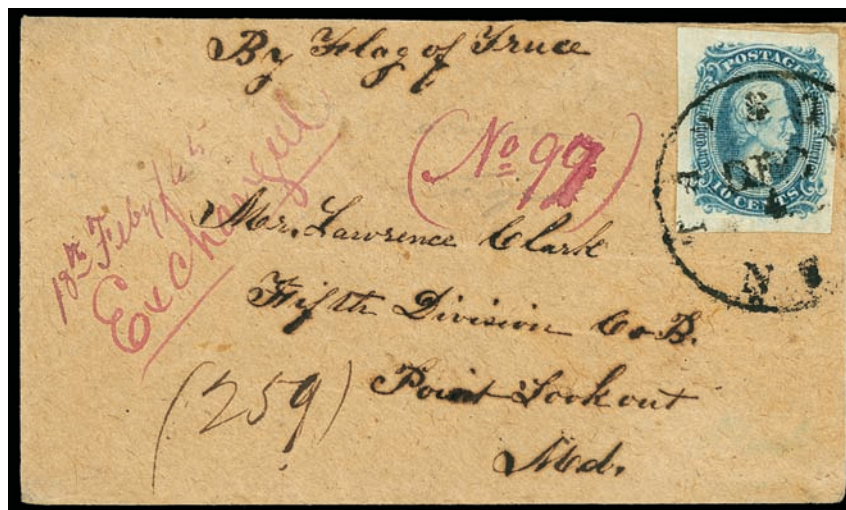 By Flag of Truce
POSTAGE
DEC
4
10 CENTS
N
(No 99)
18th Feby/65
Exchanged
Mr. Lawrence Clark
Fifth Division Co B.
Point Lookout
Md.
(259)